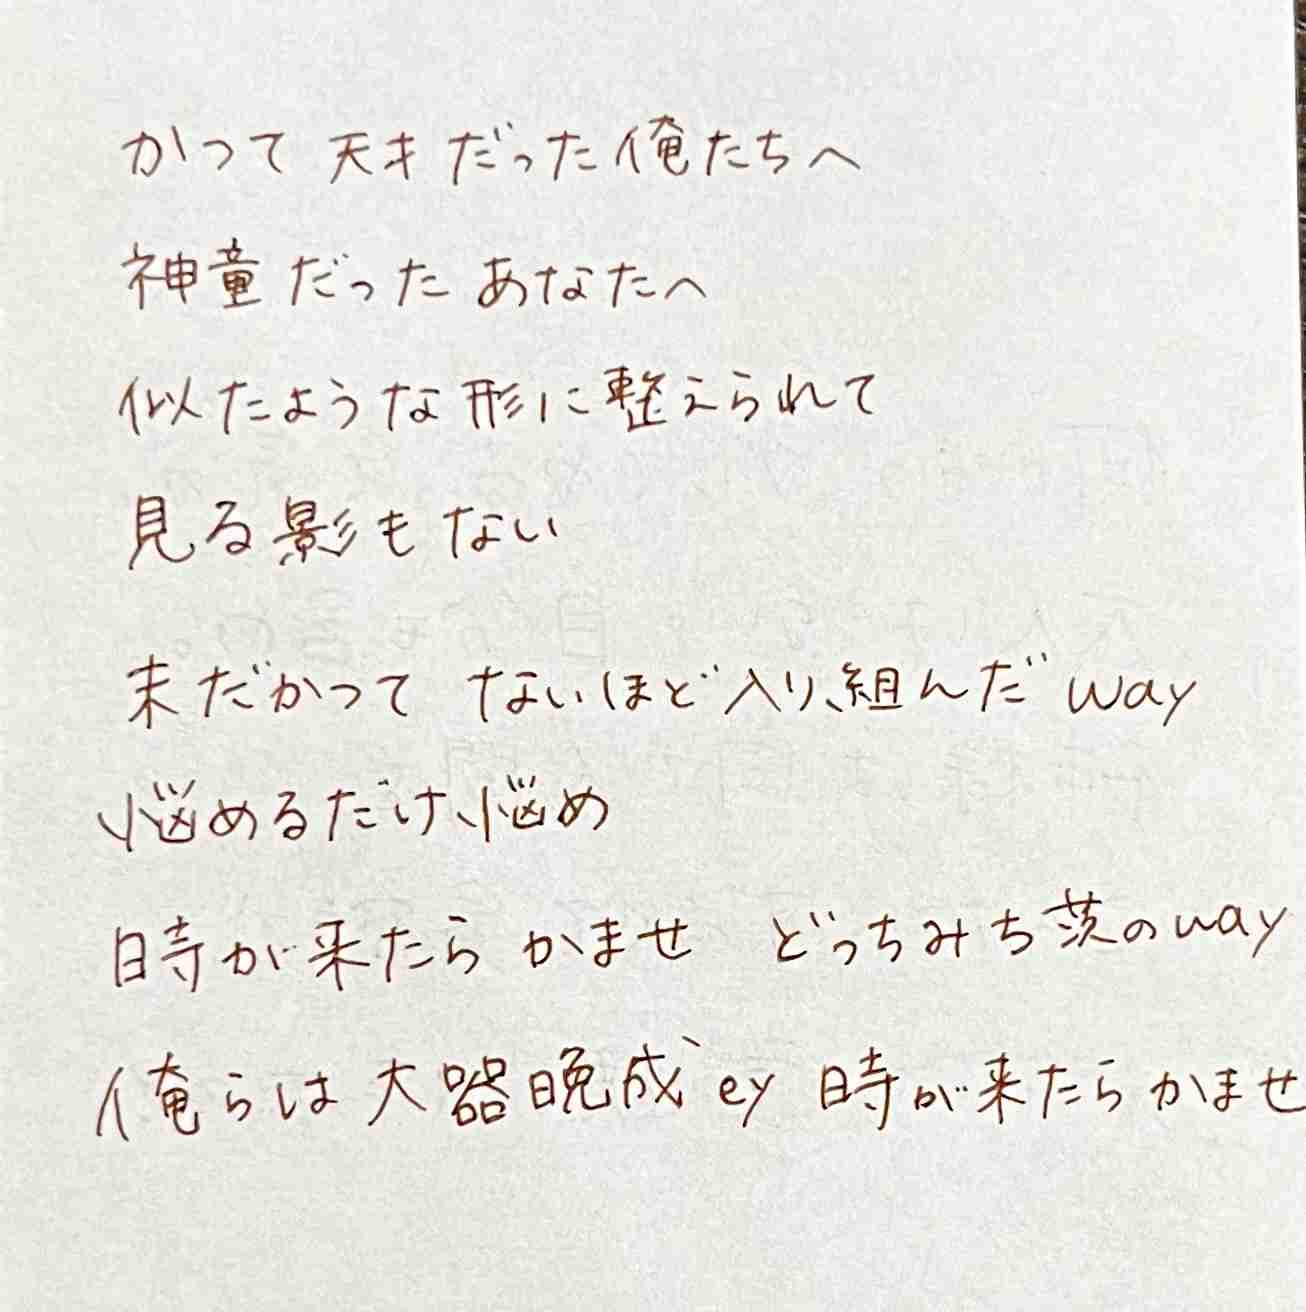 かつて 天才だった俺たちへ
神童だった あなたへ
似たような形に整えられて
見る影もない
未だかつて ないほど入り組んだ way
悩めるだけ悩め
時が来たら かませ どっちみち茨のway
俺らは 大器晩成 ey 時が来たらかませ